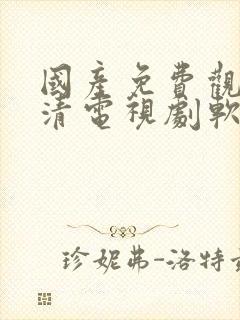 國產免費觀
清電視劇軟
珍妮弗-洛特